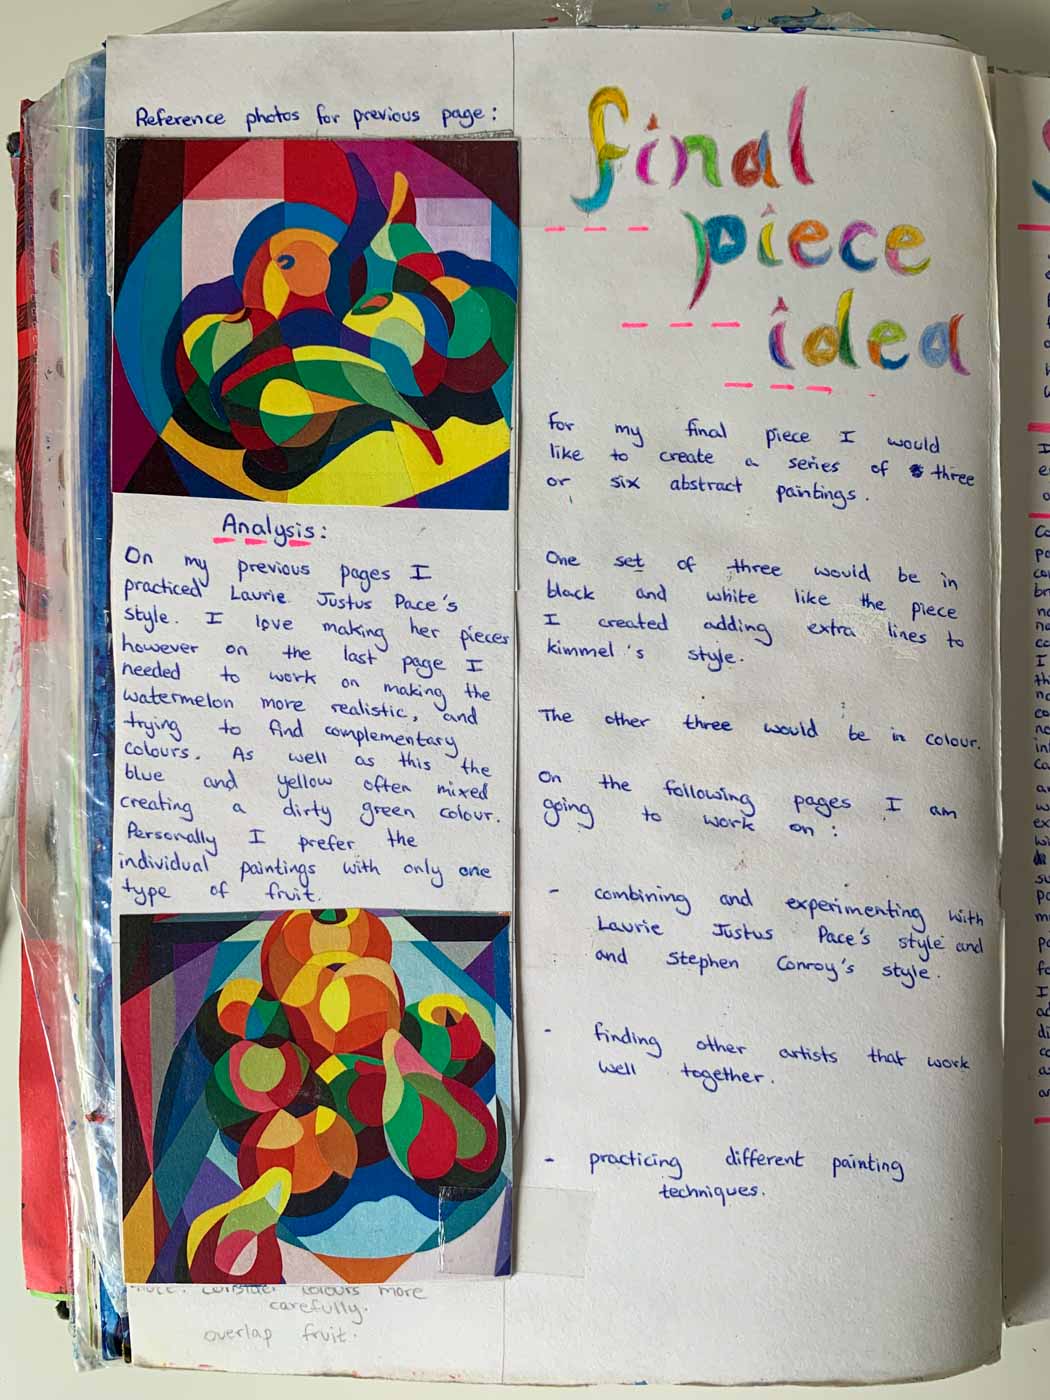 Reference photos for previous page:
Analysis:
On my previous pages I
practiced Laurie Justus Pace's
style. I love making her pieces
however on the last page I
needed to work on making the
watermelon more realistic, and
trying to find complementary
colours. As well as this the
blue and yellow often mixed
creating a dirty green colour.
Personally I prefer the
individual paintings with only one
type of fruit.
consider colours more
carefully.
overlap fruit.
final
piece
idea
for my final piece I would
like to create a series of three
or six abstract paintings.
One set of three would be in
black and white like the piece
I created adding extra lines to
kimmel's style.
The other three would be in colour.
On the following pages I am
going to work on:
- combining and experimenting with
Laurie Justus Pace's style and
and Stephen Conroy's style.
- finding other artists that work
well together.
- practicing different painting
techniques.